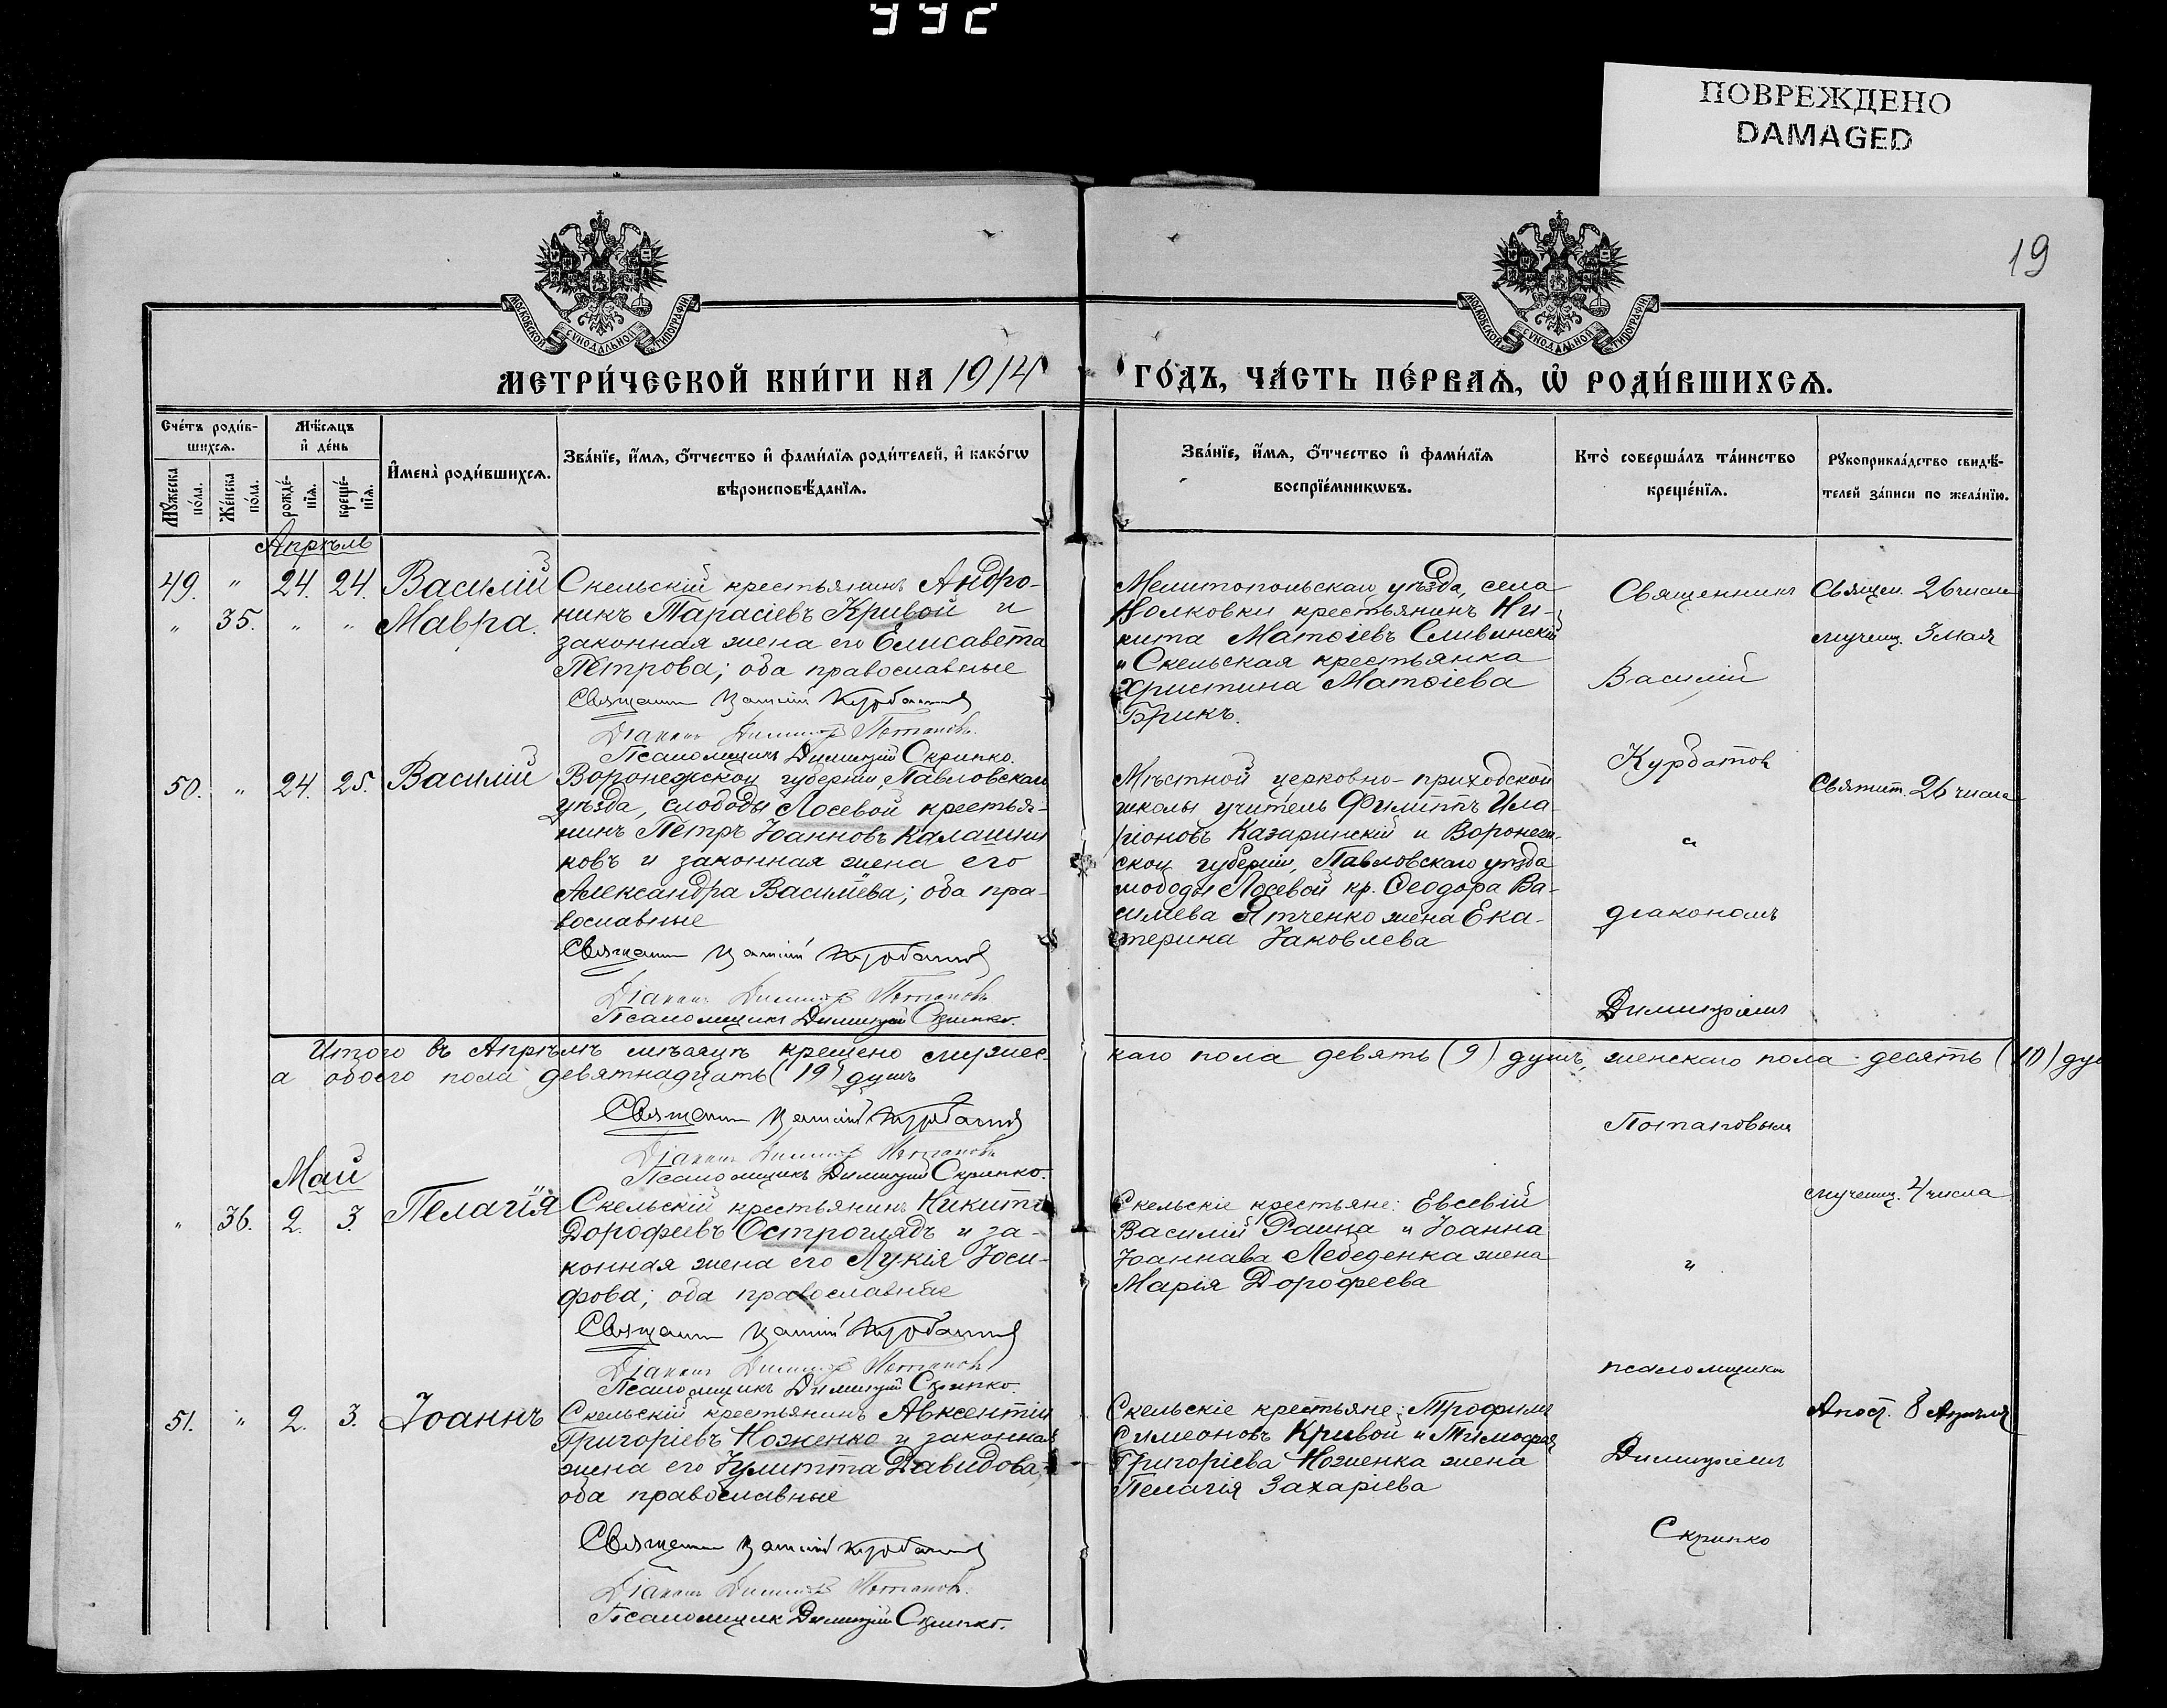 992
ПОВРЕЖДЕНО
DAMAGED
19
МОСКОВСКОЙ СѴНОДАЛЬНОЙ ТИПОГРАФІИ
МОСКОВСКОЙ СѴНОДАЛЬНОЙ ТИПОГРАФІИ
МЕТРИ́ЧЕСКОЙ КНИ́ГИ НА 1914 ГО́ДЪ, ЧА́СТЬ ПЕ́РВАѦ, Ѡ҆ РОДИ́ВШИХСѦ.
Сче́тъ роди́в-
шихсѧ.
Мѣ́сяцъ
и҆ де́нь
Мꙋ́жеска
по́ла.
Же́нска
по́ла.
рожде́-
нїѧ.
креще́-
нїѧ.
И҆мена̀ роди́вшихсѧ.
Зва́нїе, и҆́мѧ, ѻ҆́тчество и҆ фами́лїѧ роди́телей, и҆ како́гѡ
вѣроисповѣ́данїѧ.
Зва́нїе, и҆́мѧ, ѻ҆́тчество и҆ фами́лїѧ
воспрїе́мникѡвъ.
Кто̀ соверша́лъ та́инство
креще́нїѧ.
Рꙋкоприкла́дство свидѣ́-
телей за́писи по жела́нїю.
Апрѣль
49. " 24. 24. Василій
" 35. " " Мавра.
Скельскій крестьянинъ Андро-
никъ Тарасіевъ Кривой и
законная жена его Елисавета
Петрова; оба православные
Священ Василій Курбатовъ
Діаконъ Димитрій Потаповъ.
Псаломщикъ Димитрій Скрипко.
Мелитопольскаго уѣзда, села
Волковки крестьянинъ Ни-
кита Матѳіевъ Сливинскій
и Скельская крестьянка
Христина Матѳіева
Брикъ.
Священникъ
Василій
Курбатовъ
Священ. 26 числа
мучениц. 3 мая
50. " 24. 25. Василій
Воронежской губерніи, Павловскаго
уѣзда, слободы Лосевой крестья-
нинъ Петръ Іоанновъ Калашни
ковъ и законная жена его
Александра Василіева; оба пра-
вославные
Священ Василій Курбатовъ
Діаконъ Димитрій Потаповъ
Псаломщикъ Димитрій Скрипко.
Мѣстной церковно-приходской
школы учитель Филиппъ Ила-
ріоновъ Казаринскій и Воронеж-
ской губерніи, Павловскаго уѣзда
слободы Лосевой кр. Ѳеодора Ва-
силіева Ятченко жена Ека-
терина Іаковлева
"
діакономъ
Димитріемъ
Потаповымъ
Святит. 26 числа
Итого въ Апрѣлѣ мѣсяцѣ крещено мужес- каго пола девять (9) душъ, женскаго пола десять (10) ду
а обоего пола девятнадцать (19) душъ
Священ Василій Курбатовъ
Діаконъ Димитрій Потаповъ
Псаломщикъ Димитрій Скрипко.
Май
" 36. 2. 3. Пелагія
Скельскій крестьянинъ Никита
Дорофеевъ Остроглядъ и за-
конная жена его Лукія Іоси-
фова; оба православные
Священ Василій Курбатовъ
Діаконъ Димитрій Потаповъ
Псаломщикъ Димитрій Скрипко.
Скельскіе крестьяне: Евсевій
Василій Раица и Іоанна
Іоаннава Лебеденка жена
Марія Дорофеева
"
псаломщикъ
Димитріемъ
Скрипко
мучениц. 4 числа
51. " 2. 3. Іоаннъ
Скельскій крестьянинъ Авксентій
Григоріевъ Ноженко и законная
жена его Іулитта Давидова,
оба православные
Священ Василій Курбатовъ
Діаконъ Димитрій Потаповъ.
Псаломщик Димитрій Скрипко.
Скельскіе крестьяне: Трофимъ
Симеоновъ Кривой и Тимофея
Григоріева Ноженка жена
Пелагія Захаріева
Апост. 8 Апрѣля